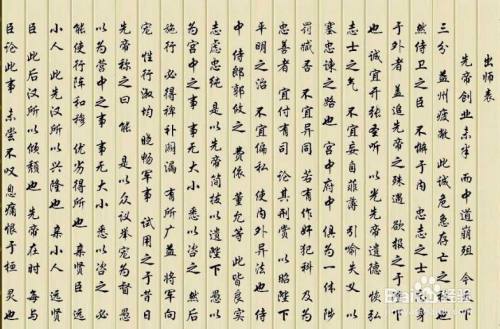 出师表
先帝创业未半 而中道崩殂 今天下
三分 益州疲敝 此诚危急存亡之秋也
然侍卫之臣 不懈于内 忠志之士忘身
于外者 盖追先帝之殊遇 欲报之于陛下
也 诚宜开张圣听 以光先帝遗德 恢弘
志士之气 不宜妄自菲薄 引喻失义 以
塞忠谏之路也 宫中府中 俱为一体 陟
罚臧否 不宜异同 若有作奸犯科 及为
忠善者 宜付有司 论其刑赏 以昭陛下
平明之治 不宜偏私 使内外异法也 侍
中 侍郎郭攸之 费依 董允等 此皆良实
志虑忠纯 是以先帝简拔以遗陛下 愚以
为宫中之事 事无大小 悉以咨之 然后
施行 必得裨补阙漏 有所广益 将军向
宠 性行淑均 晓畅军事 试用之于昔日
先帝称之曰 能 是以众议举宠为督 愚
以为营中之事 事无大小 悉以咨之 必
能使行阵和穆 优劣得所也 亲贤臣 远
小人 此先汉所以兴隆也 亲小人 远贤
臣 此后汉所以倾颓也 先帝在时 每与
臣论此事 未尝不叹息痛恨于桓 灵也